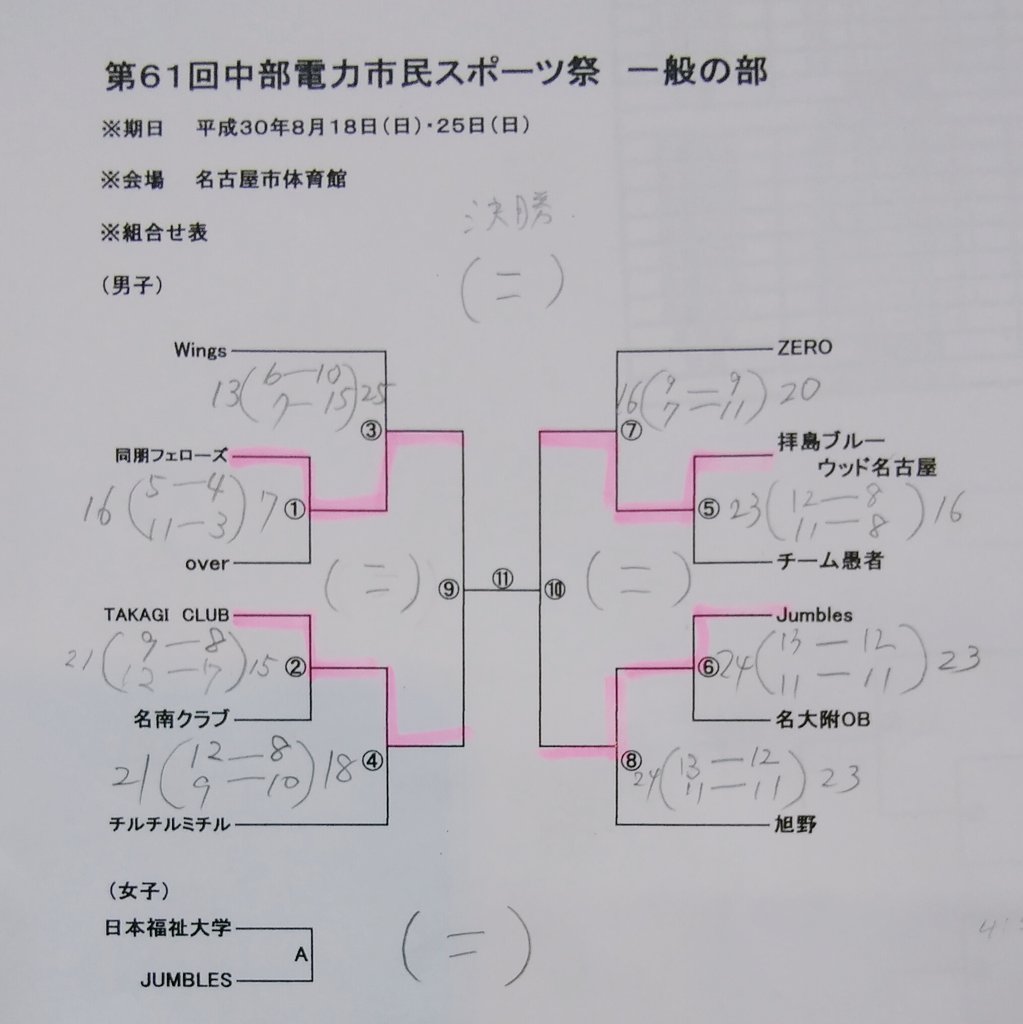 第61回中部電力市民スポーツ祭 一般の部
※期日 平成30年8月18日(日)・25日(日)
※会場 名古屋市体育館
※組合せ表
決勝
(男子)
( = )
Wings
ZERO
13(6—10)25
7—15
③
16(9—9)20
7—11
⑦
同朋フェローズ
拝島ブルー
ウッド名古屋
16(5—4)7
11—3
①
⑤
23(12—8)16
11—8
over
チーム愚者
( = )
⑨
⑪
⑩
( = )
TAKAGI CLUB
Jumbles
21(9—8)15
12—7
②
⑥
24(13—12)23
11—11
名南クラブ
名大附OB
21(12—8)18
9—10
④
⑧
24(13—12)23
11—11
チルチルミチル
旭野
(女子)
日本福祉大学
A
( = )
JUMBLES